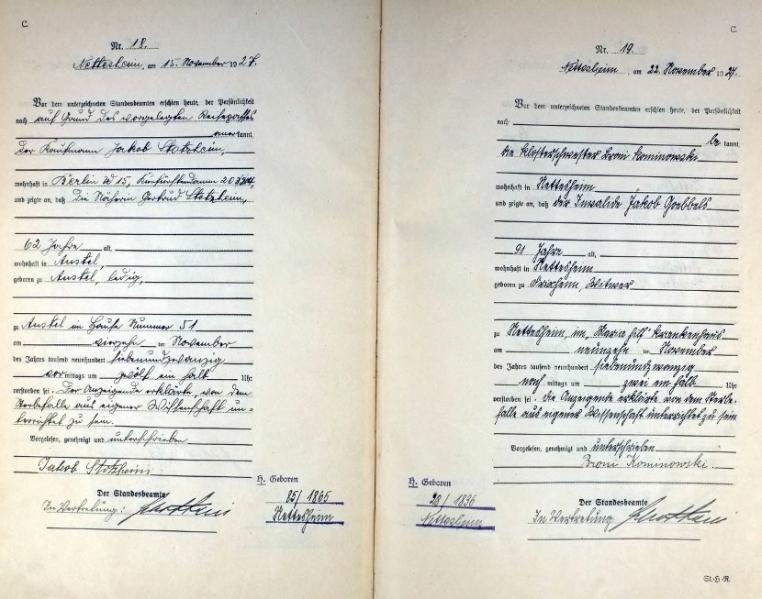 C.
Nr. 18.
Nettesheim, am 15. November 1927.
Vor dem unterzeichneten Standesbeamten erschien heute, der Persönlichkeit
nach auf Grund des vorgelegten Reisepasses
anerkannt,
der Kaufmann Jakob Stotzheim,
wohnhaft in Berlin W 15, Kurfürstendamm 203
und zeigte an, daß Die Näherin Gertrud Stotzheim,
62 Jahre alt,
wohnhaft in Anstel,
geboren zu Anstel, ledig,
zu Anstel im Hause Nummer 51
am vierzehn ten November
des Jahres tausend neunhundert siebenundzwanzig
vor mittags um zwölf ein halb Uhr
verstorben sei. Der Anzeigende erklärte, von dem
Sterbefalle aus eigener Wissenschaft un-
terrichtet zu sein.
Vorgelesen, genehmigt und unterschrieben
Jakob Stotzheim
Der Standesbeamte
In Vertretung:
H. Geboren
25/1865
Nettesheim
C.
Nr. 19.
Nettesheim, am 22. November 1927.
Vor dem unterzeichneten Standesbeamten erschien heute, der Persönlichkeit
nach
be kannt,
die Klosterschwester Broni Kominowski
wohnhaft in Nettesheim
und zeigte an, daß der Invalide Jakob Goebbels
91 Jahre alt,
wohnhaft in Nettesheim
geboren zu Frixheim, Witwer
zu Nettesheim, im "Maria hilf" Krankenhaus
am neunzehn ten November
des Jahres tausend neunhundert siebenundzwanzig
nach mittags um zwei ein halb Uhr
verstorben sei. Die Anzeigende erklärte von dem Sterbe-
falle aus eigener Wissenschaft unterrichtet zu sein
Vorgelesen, genehmigt und unterschrieben
Broni Kominowski
Der Standesbeamte
In Vertretung
H. Geboren
28/1836
Nettesheim
St.-H.-R.